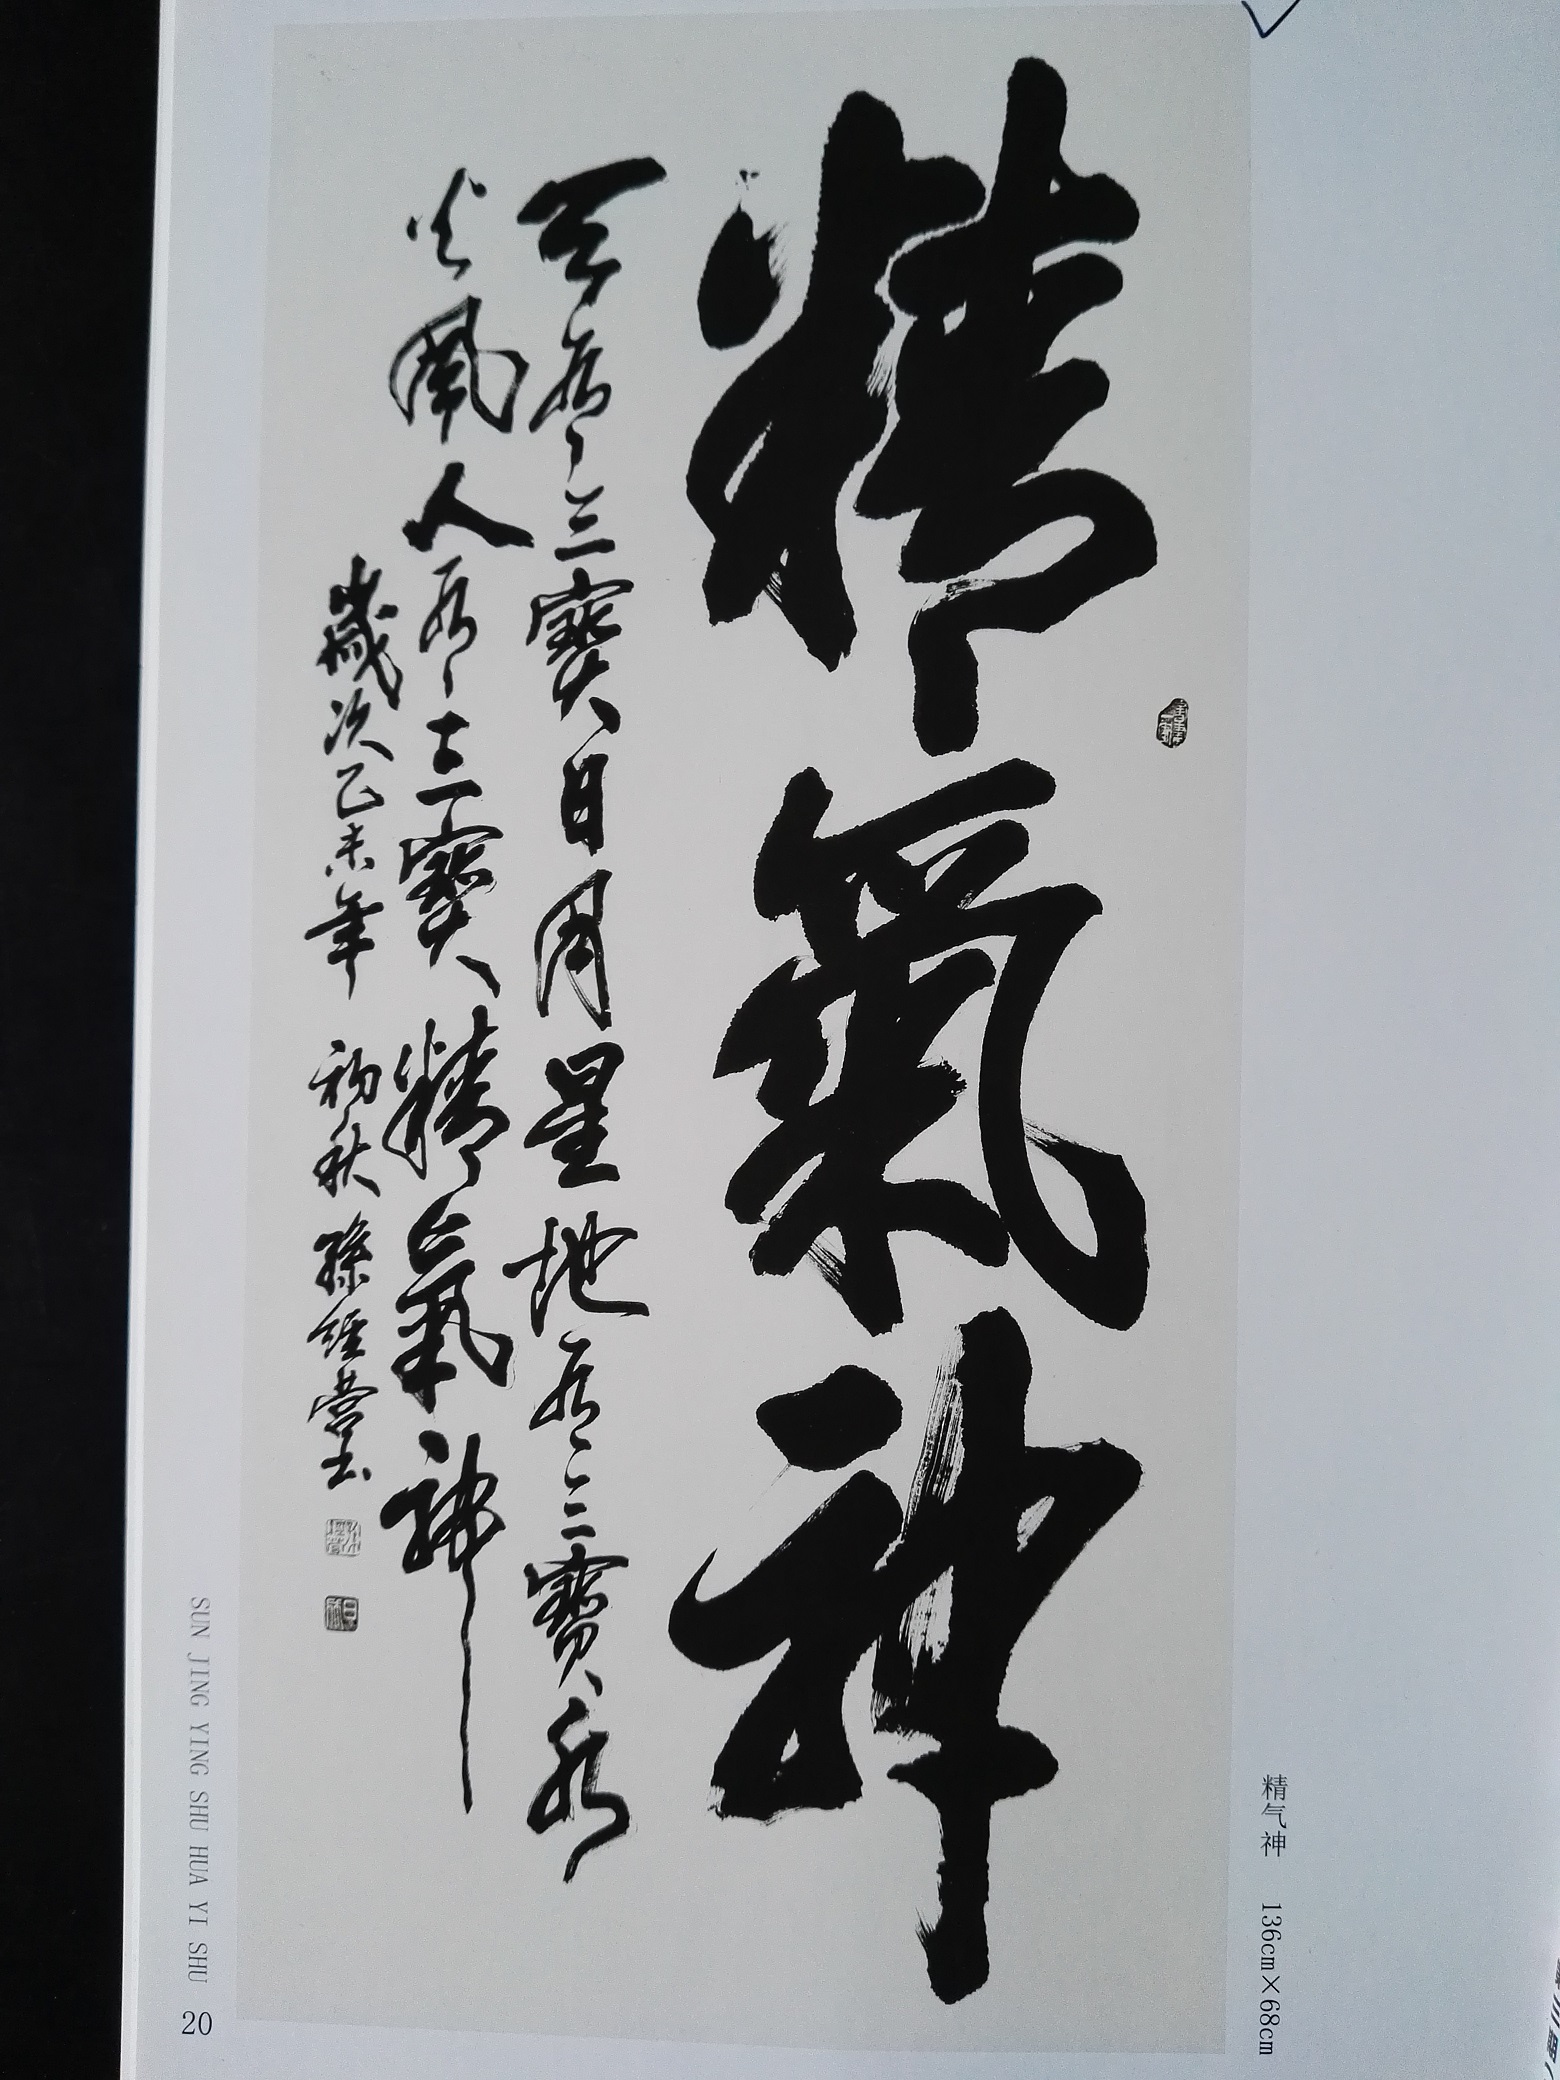 精氣神
天有三寳日月星地有三寳水
火風人有三寳精氣神
歲次乙未年初秋孫經营书
精气神 136cm×68cm
SUN JING YING SHU HUA YI SHU 20